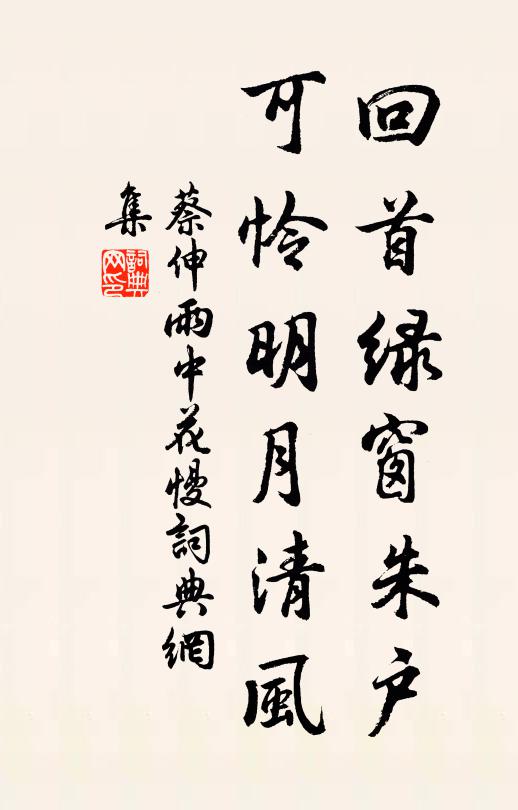 回首绿窗朱户
可怜明月清風
蔡伸雨中花慢詞典網
集
詞典网印